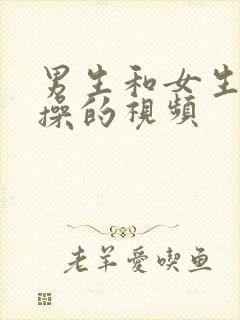 男生和女生
操的視頻
老羊愛喫鱼